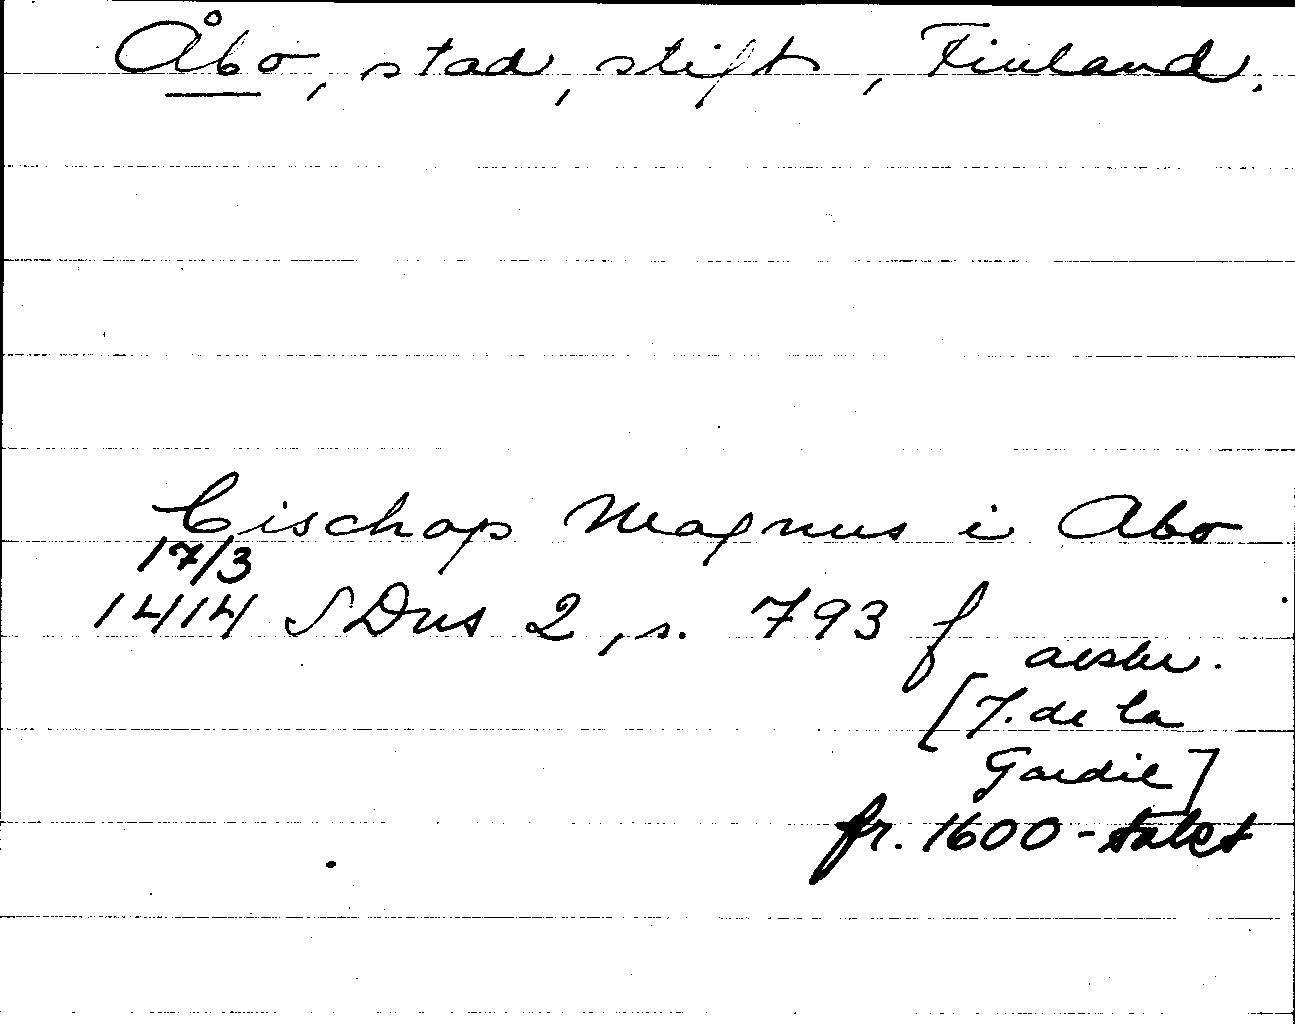 Åbo, stad, stift, Finland.
bischop Magnus i Abo
17/3
1414 SDns 2, s. 793 f avskr.
[J. de la
Gardie]
fr. 1600-talet